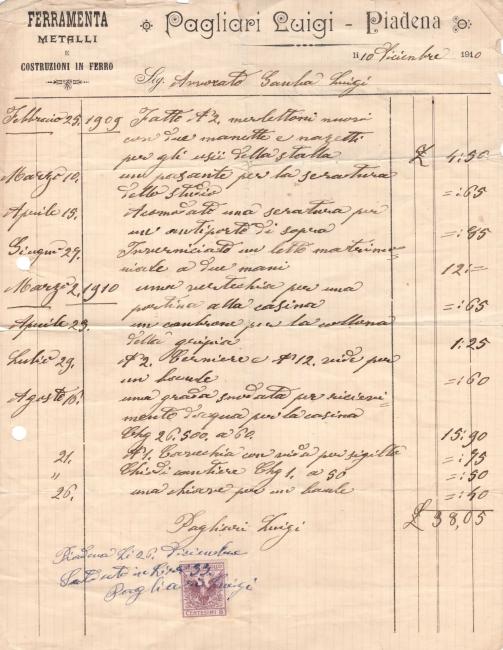 FERRAMENTA
METALLI
E
COSTRUZIONI IN FERRO
Pagliari Luigi - Piadena
li 10 Dicembre 1910
Sig. Avvocato Luigi
Febbraio 25. 1909 Fatto N 2. merlettoni nuovi
con due manette e nazetti
per gli usci della stalla £ 4:50
Marzo 10. un posante per la seratura
dello studio =:65
Aprile 15. Acomodato una seratura per
un antiporto di sopra =:85
Giugno 29. Inverniciato un letto matrimo=
niale a due mani 12:=
Marzo 2. 1910 una vertechia per una
portina alla casina =:65
Aprile 23. un cambrone per la collona
della 1:25
Luglio 29. N 2. Cerniere e N 12. vide per
un baule =:60
Agosto 16. una grada snodata per ricevi=
mento d'acqua per la casina
Chg 26.500. a 60. 15:90
21. N 1. con vida per sigillo =:75
" Chiodi cantiere Chg 1. a 50 =:50
26. una chiave per un baule =:40
£ 38,05
Pagliari Luigi
Piadena li 26. Dicembre
Saldato in Lire 33.
Pagliari Luigi
CENTESIMI 5